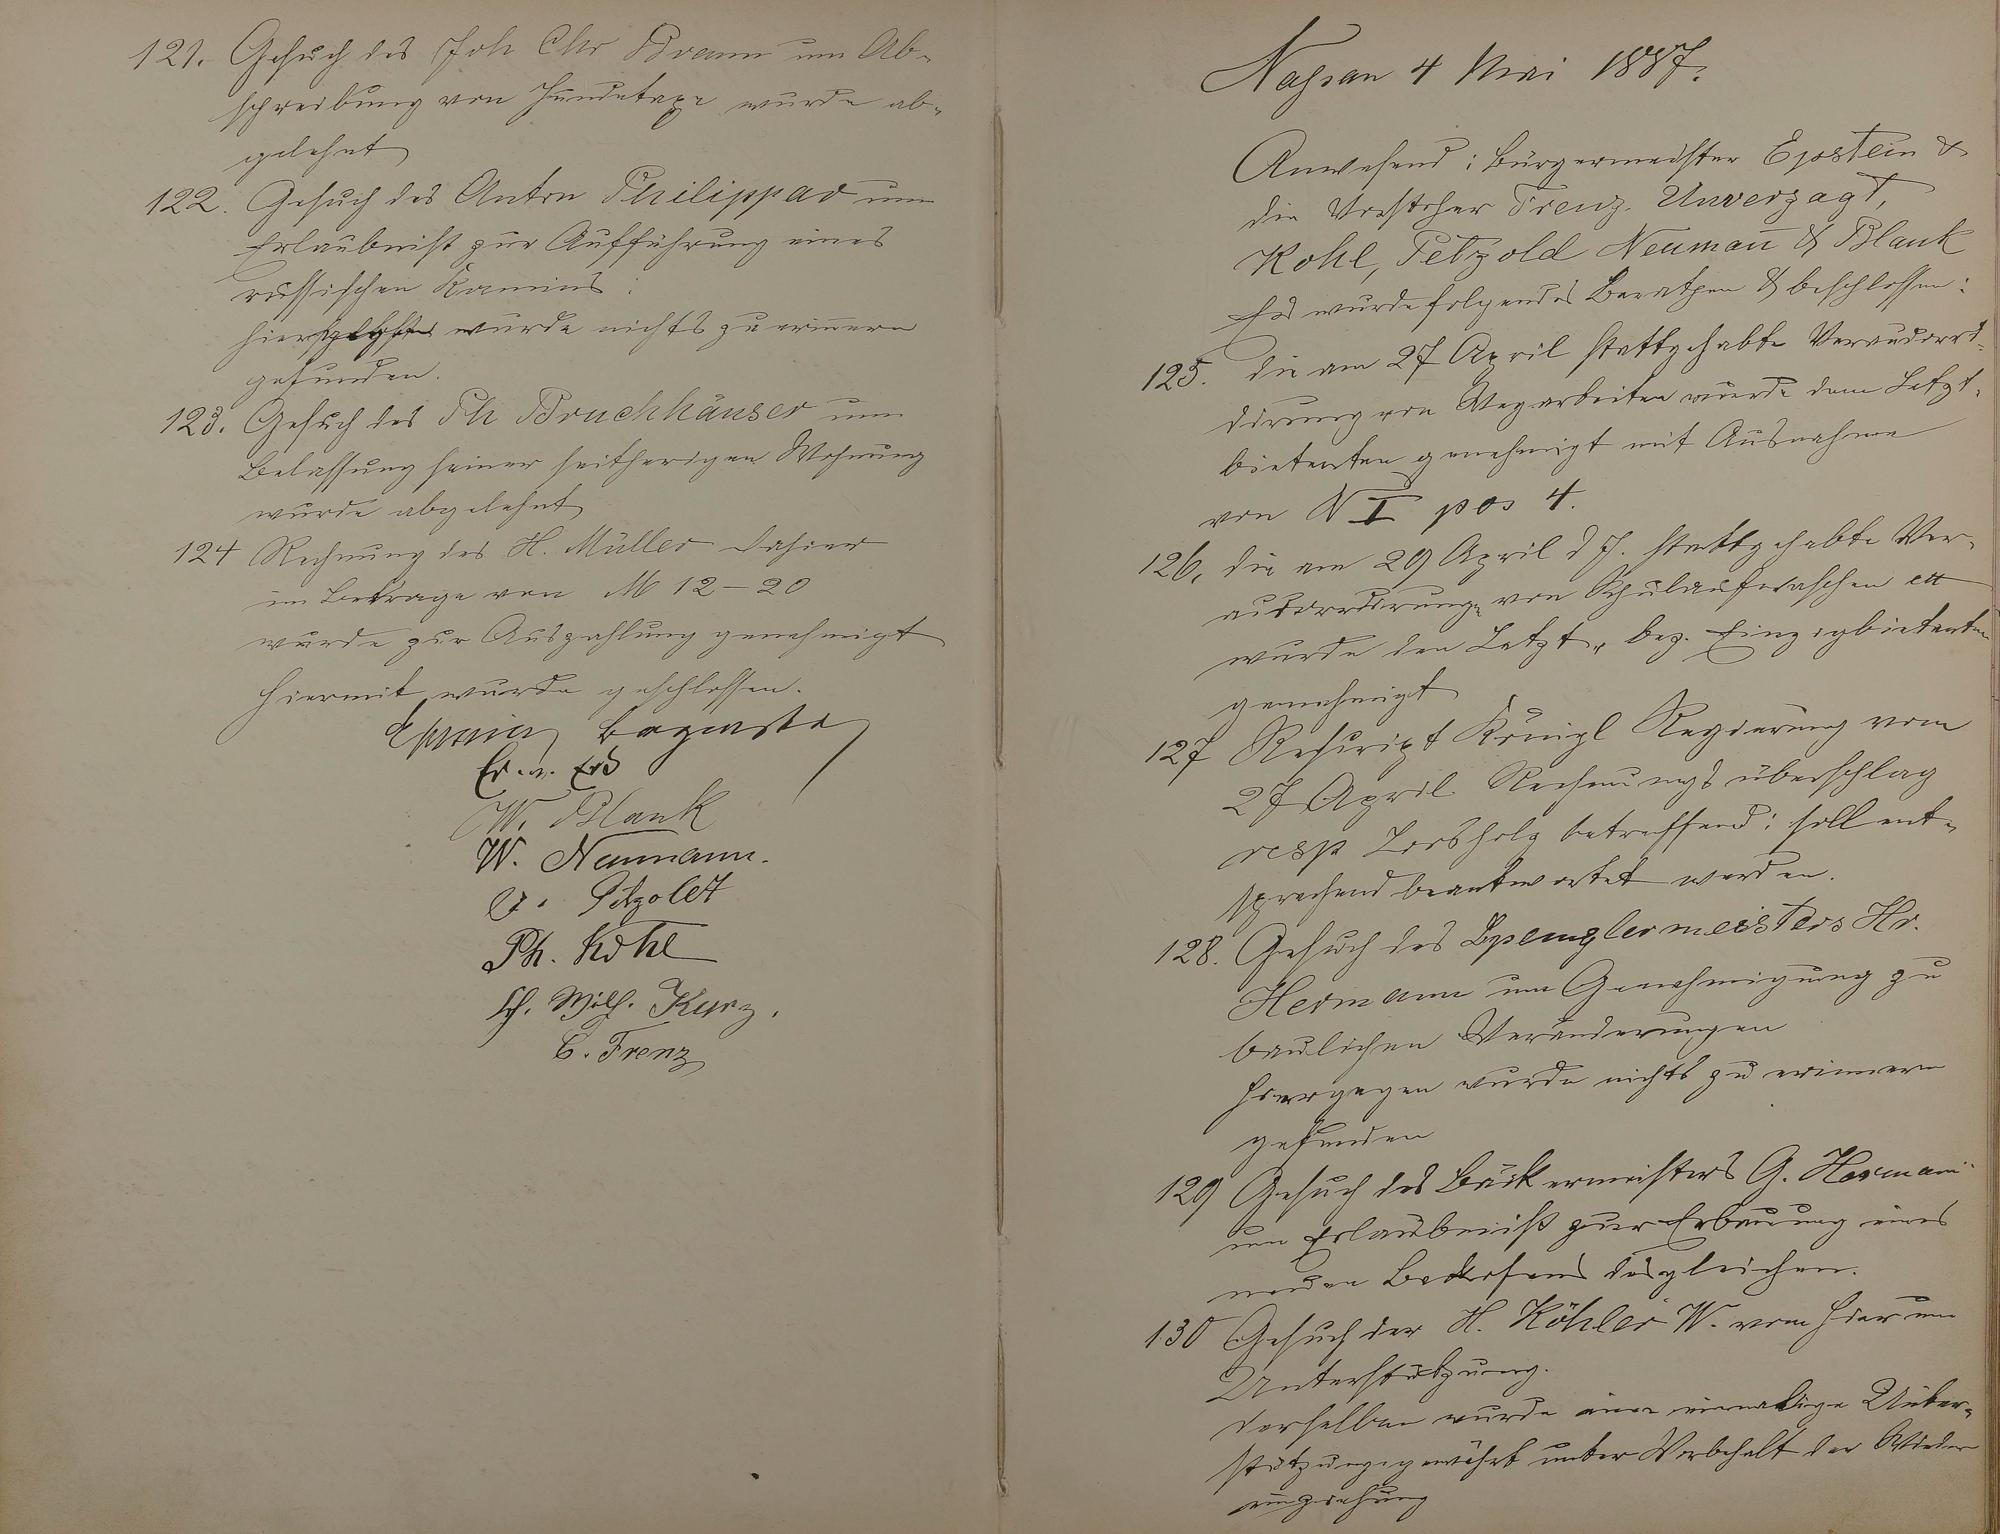 121. Gesuch des Joh Chr Braun um Ab-
schreibung von Hundetaxe wurde ab-
gelehnt
122. Gesuch des Anton Philippar um
Erlaubnißt zur Aufführung eines
russischen Kamins:
wurde nichts zu erinnern
gefunden.
123. Gesuch des Ph Bruchhäuser um
Belassung seiner seitherigen Wohnung
wurde abgelehnt
124 Rechnung des H. Müller dahier
im Betrage von M 12–20
wurde zur Auszahlung genehmigt
Hiermit wurde geschlossen.
W. Blank
W. Neumann.
Ph. Kohl
Wilh. Kurz.
C. Trenz
Nassau 4 Mai 1887.
Anwesend: Bürgermeister Epstein &
die Vorsteher Trenz. Unverzagt,
Kohl, Petzold Neumañ & Blank
Es wurde folgendes Berathen & beschlossen:
125. die am 27 April stattgehabte Veraccord-
dirung von Wegarbeiten wurde dem Letzt-
bietenten genehmigt mit Ausnahme
von N I pos 4.
126. die am 29 April d J. stattgehabte Ver-
accordirung von Schulaufwaschen ett
wurde den Letzt- bez. Einzigbietenten
genehmigt
127 Rescript Königl Regierung vom
27 April. Rechnungsüberschlag
resp Loosholz betreffend: soll ent-
sprechend beantwortet werden.
128. Gesuch des Spenglermeisters Hr.
Hermann um Genehmigung zu
baulichen Veränderungen
Hiergegen wurde nichts zu erinnern
gefunden
129 Gesuch des Bäckermeisters G. Hermañ
um Erlaubniß zur Erbauung eines
neuen Backofens desgleichen.
130 Gesuch der H. Köhler W. von hier um
Unterstützung.
derselben wurde eine einmalige Unter-
stützung gewährt unter Vorbehalt der Wieder
einziehung